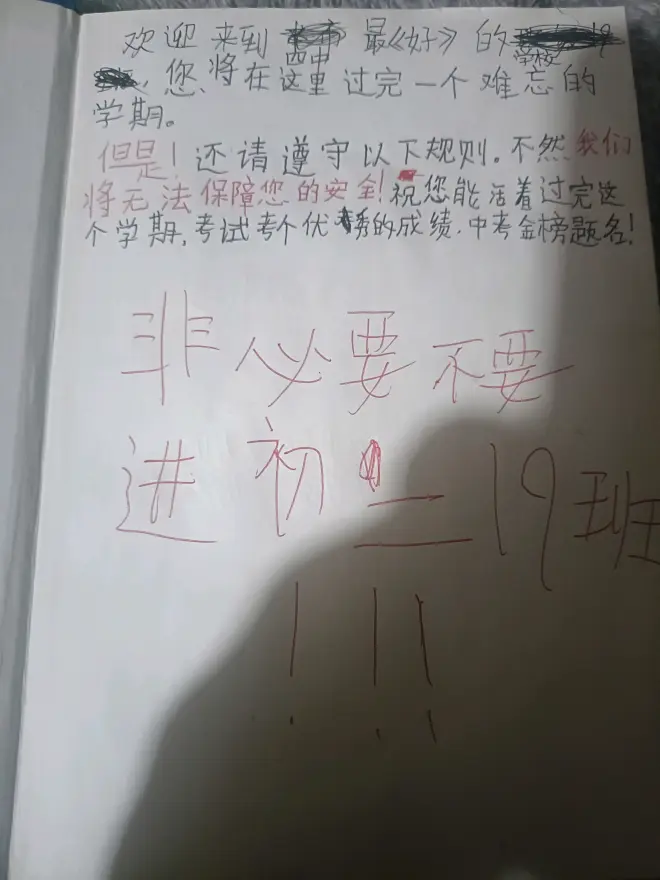 欢迎来到四中最《好》的学校19
，您将在这里过完一个难忘的
学期。
但是！还请遵守以下规则。不然我们
将无法保障您的安全！祝您能活着过完这
个学期，考试考个优秀的成绩，中考金榜题名！
非必要不要
进初二19班
！！！